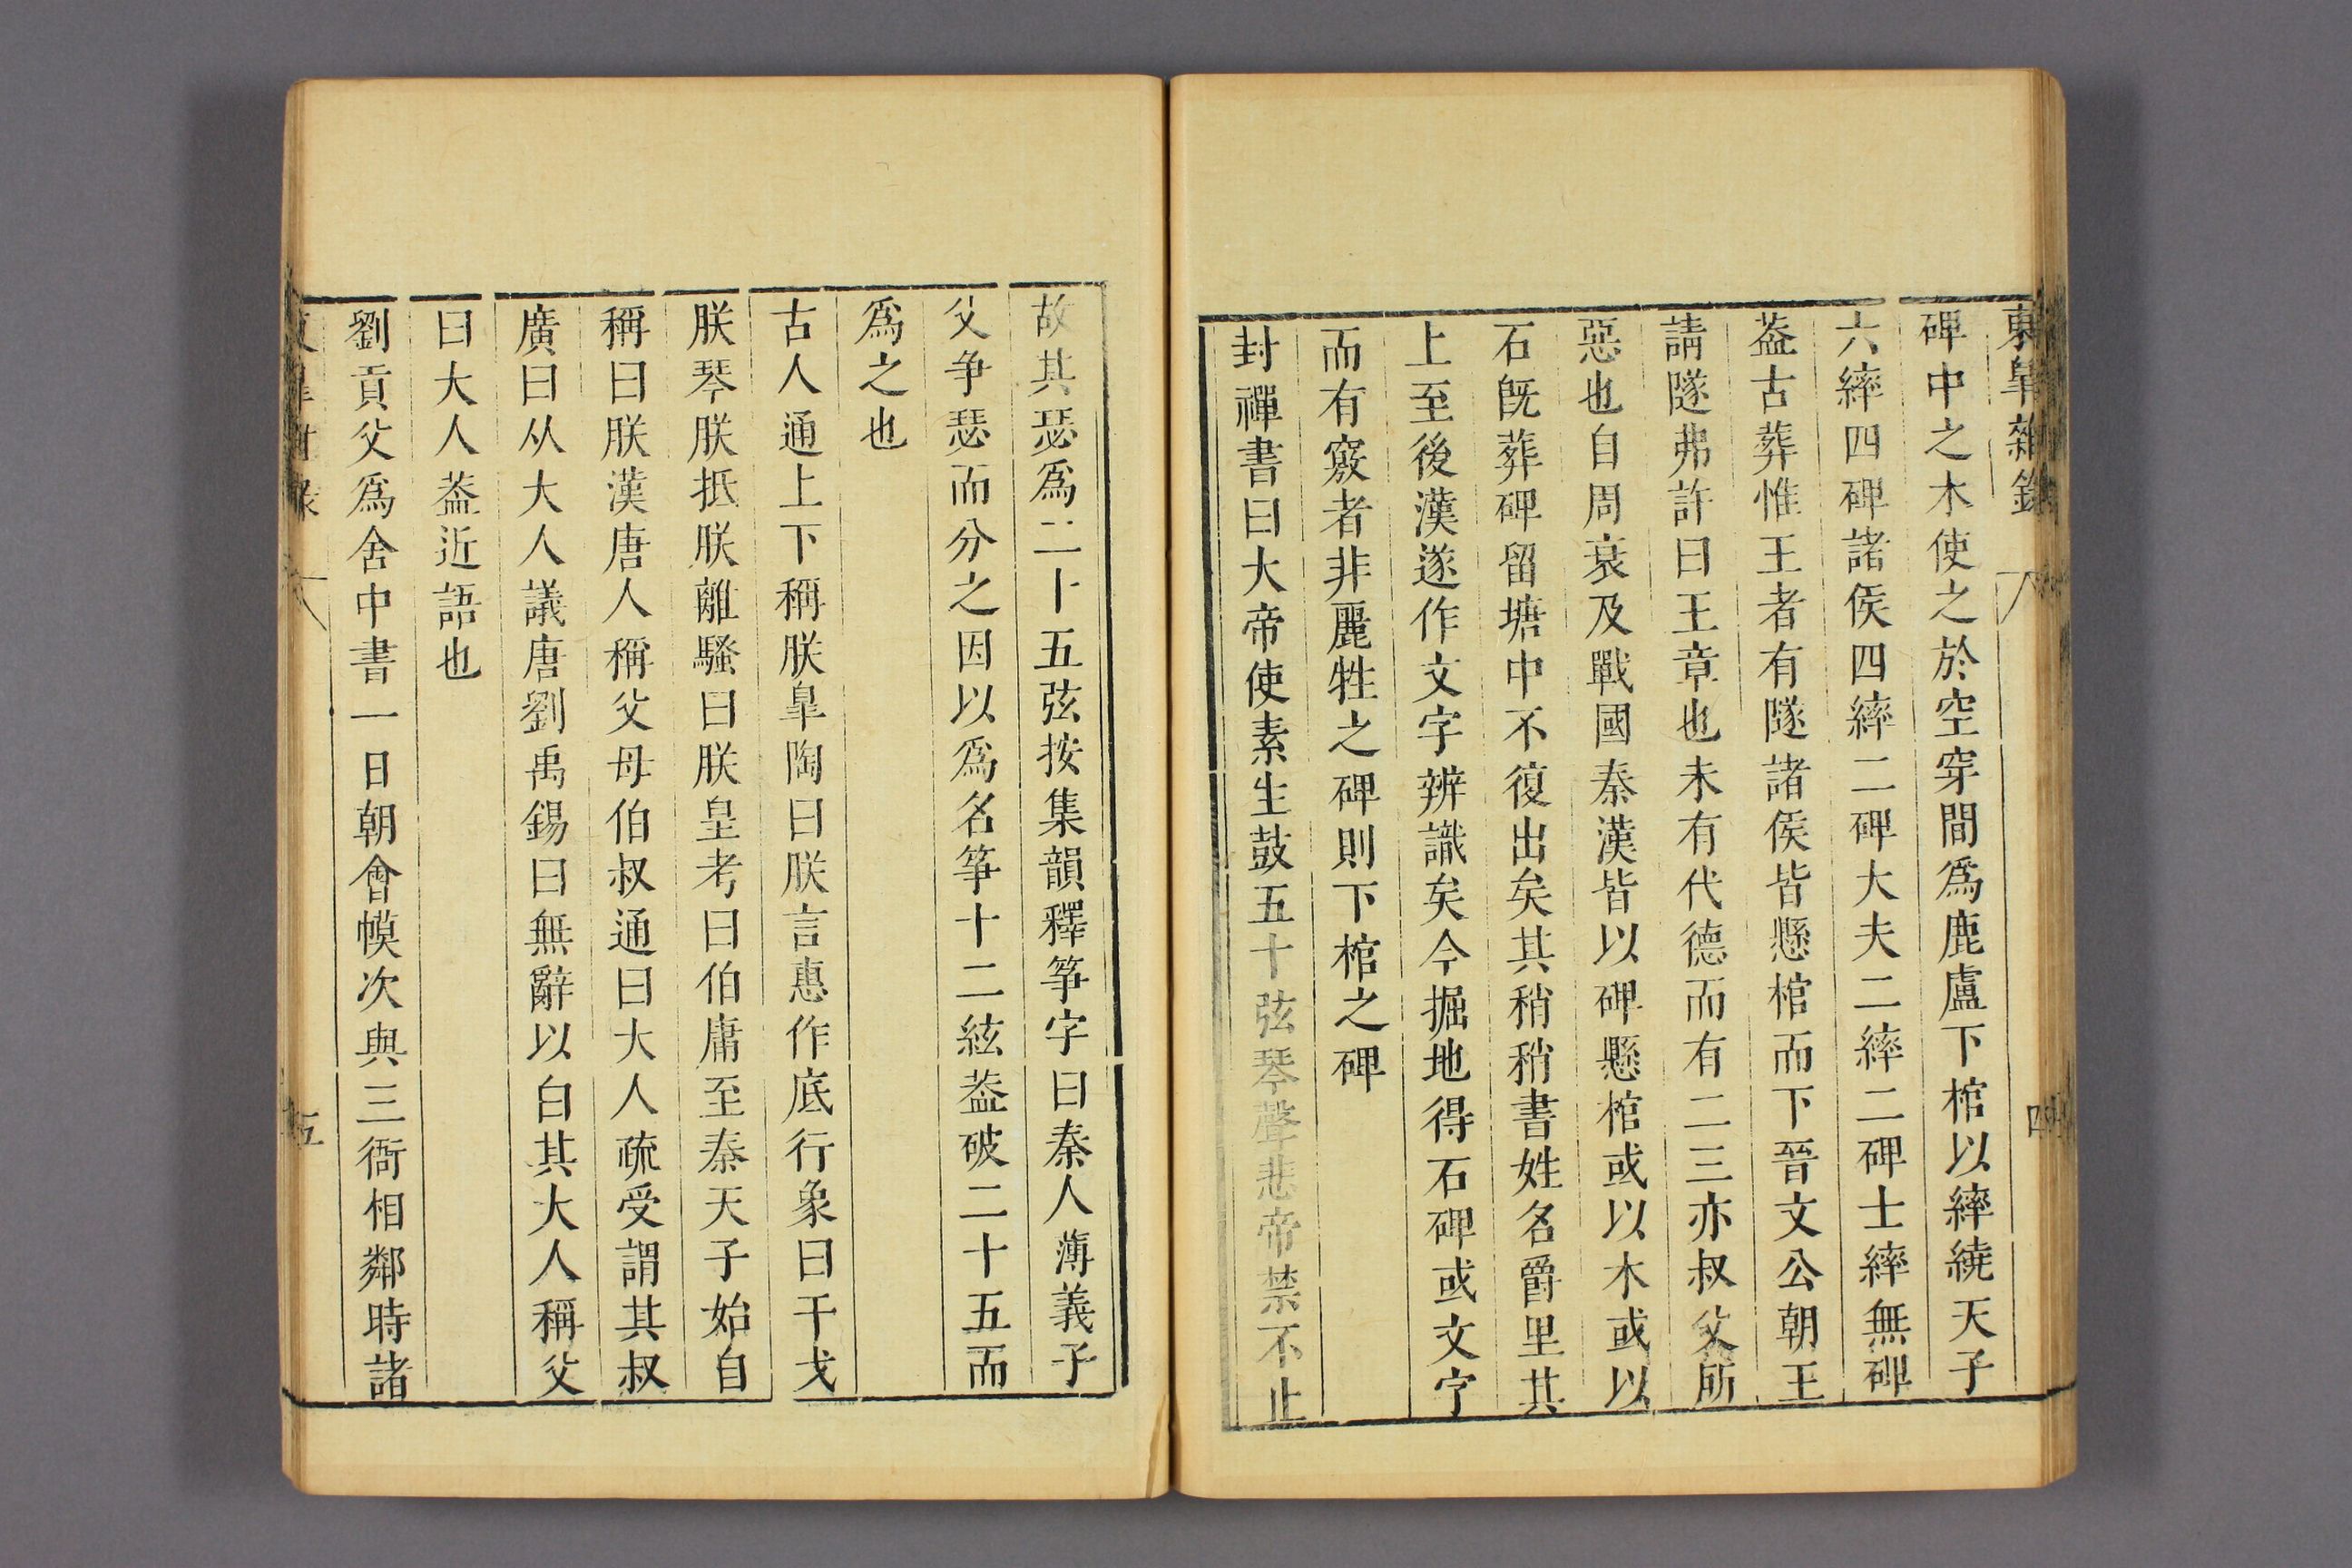 東臯雜錄
四
碑中之木使之於空穿間爲鹿盧下棺以繂繞天子
六繂四碑諸侯四繂二碑大夫二繂二碑士繂無碑
葢古葬惟王者有隧諸侯皆懸棺而下晉文公朝王
請隧弗許曰王章也未有代德而有二三亦叔父所
惡也自周衰及戰國秦漢皆以碑懸棺或以木或以
石旣葬碑留壙中不復出矣其稍稍書姓名爵里其
上至後漢遂作文字辨識矣今掘地得石碑或文字
而有竅者非麗牲之碑則下棺之碑
封禪書曰大帝使素生鼓五十弦琴聲悲帝禁不止
故其瑟爲二十五弦按集韻釋筝字曰秦人薄義子
父争瑟而分之因以爲名筝十二絃葢破二十五而
爲之也
古人通上下稱朕臯陶曰朕言惠作底行象曰干戈
朕琴朕抵朕離騷曰朕皇考曰伯庸至秦天子始自
稱曰朕漢唐人稱父母伯叔通曰大人疏受謂其叔
廣曰从大人議唐劉禹錫曰無辭以白其大人稱父
曰大人葢近語也
劉貢父爲舍中書一日朝會幙次與三衙相鄰時諸
五